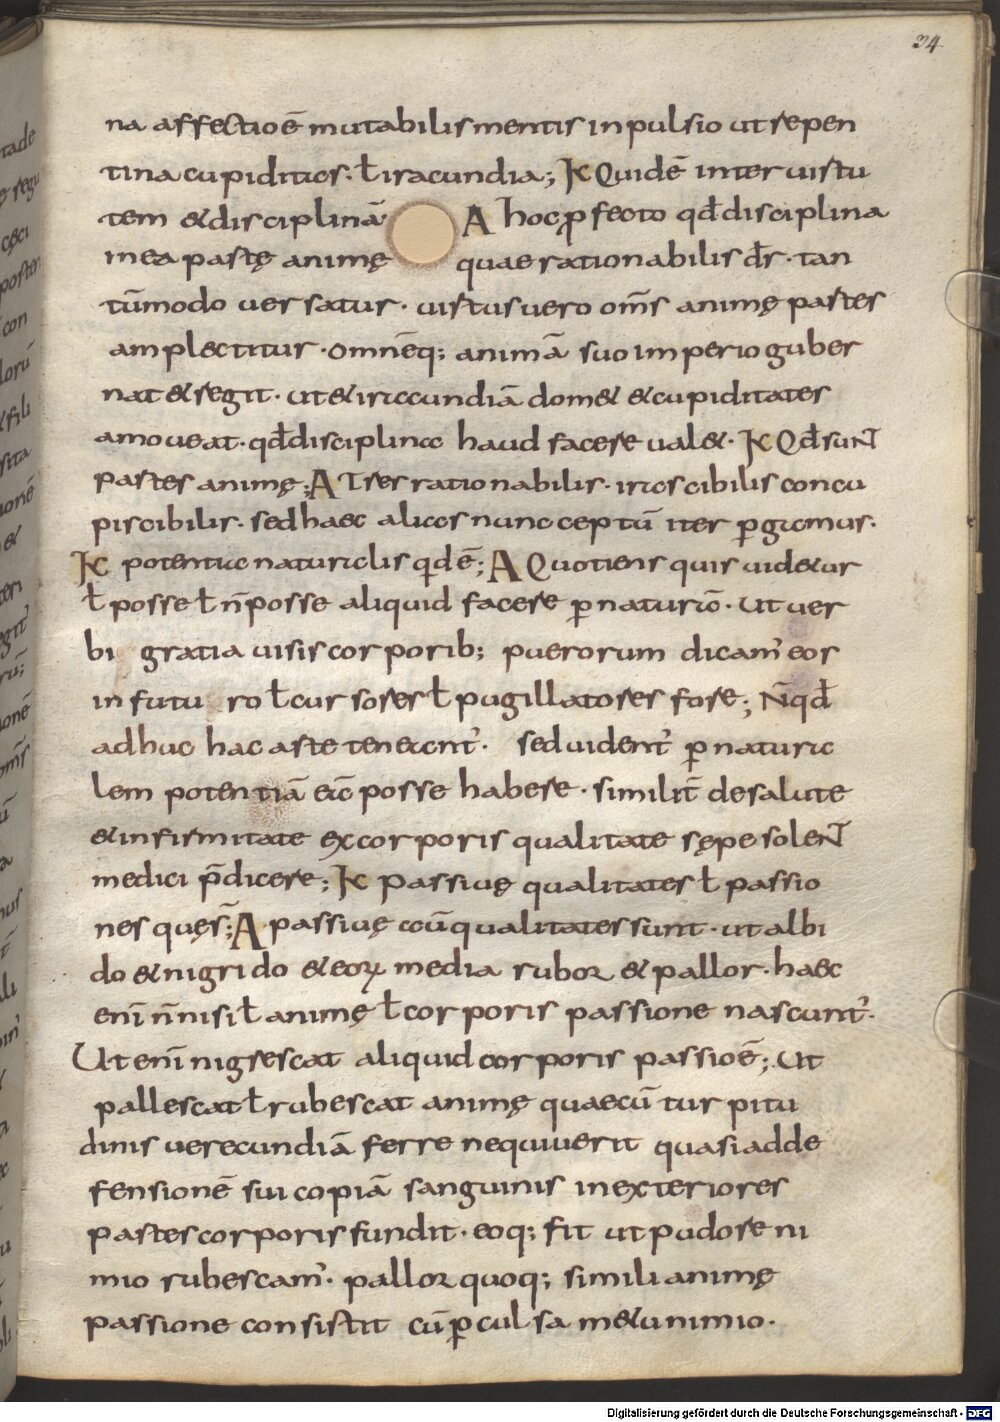 34
na affectioē mutabilis mentis inpulsio ut repen
tina cupiditas· ł iracundia; K Quid ē inter uirtu
tem & disciplinā A hoc ꝓfecto qđ disciplina
in ea parte animę quae rationabilis dr̄· tan
tūmodo uersatur· uirtus uero om̄s animę partes
amplectitur· omnēq; animā suo imperio guber
nat & regit· ut & iracundiā dom& & cupiditates
amoueat· qđ disciplina haud facere ual&· K Qđ sunt
partes animę; A Tres rationabilis· irascibilis concu
piscibilis· sed haec alias nunc ceptū iter ꝑgamus·
K potentia naturalis qid ē; A Quotiens quis uid&ur
ł posse ł n̄ posse aliquid facere ꝑ naturā· ut uer
bi gratia uisis corporib; puerorum dicam' eos
in futuro ł cursores ł pugillatores fore; N̄ qđ
adhuc hac arte teneant'· sed uident' ꝑ natura
lem potentiā eā posse habere· similit̄ de salute
& infirmitate ex corporis qualitate sępe solent
medici p̄dicere; K passiuę qualitates ł passio
nes quę s̄; A passiuę aū qualitates sunt· ut albi
do & nigrido & eoꝝ media rubor & pallor· haec
eni̅ n̄ nisi ł animę ł corporis passione nascunt'·
Ut eni̅ nigrescat aliquid corporis passio ē; Ut
pallescat ł rubescat animę quae cū turpitu
dinis uerecundiā ferre nequiuerit quasi ad de
fensionē sui copiā sanguinis in exteriores
partes corporis fundit· eoq; fit ut pudore ni
mio rubescam'· pallor quoq; simili animę
passione consistit cū ꝑculsa m&u nimio·
Digitalisierung gefördert durch die Deutsche Forschungsgemeinschaft - DFG